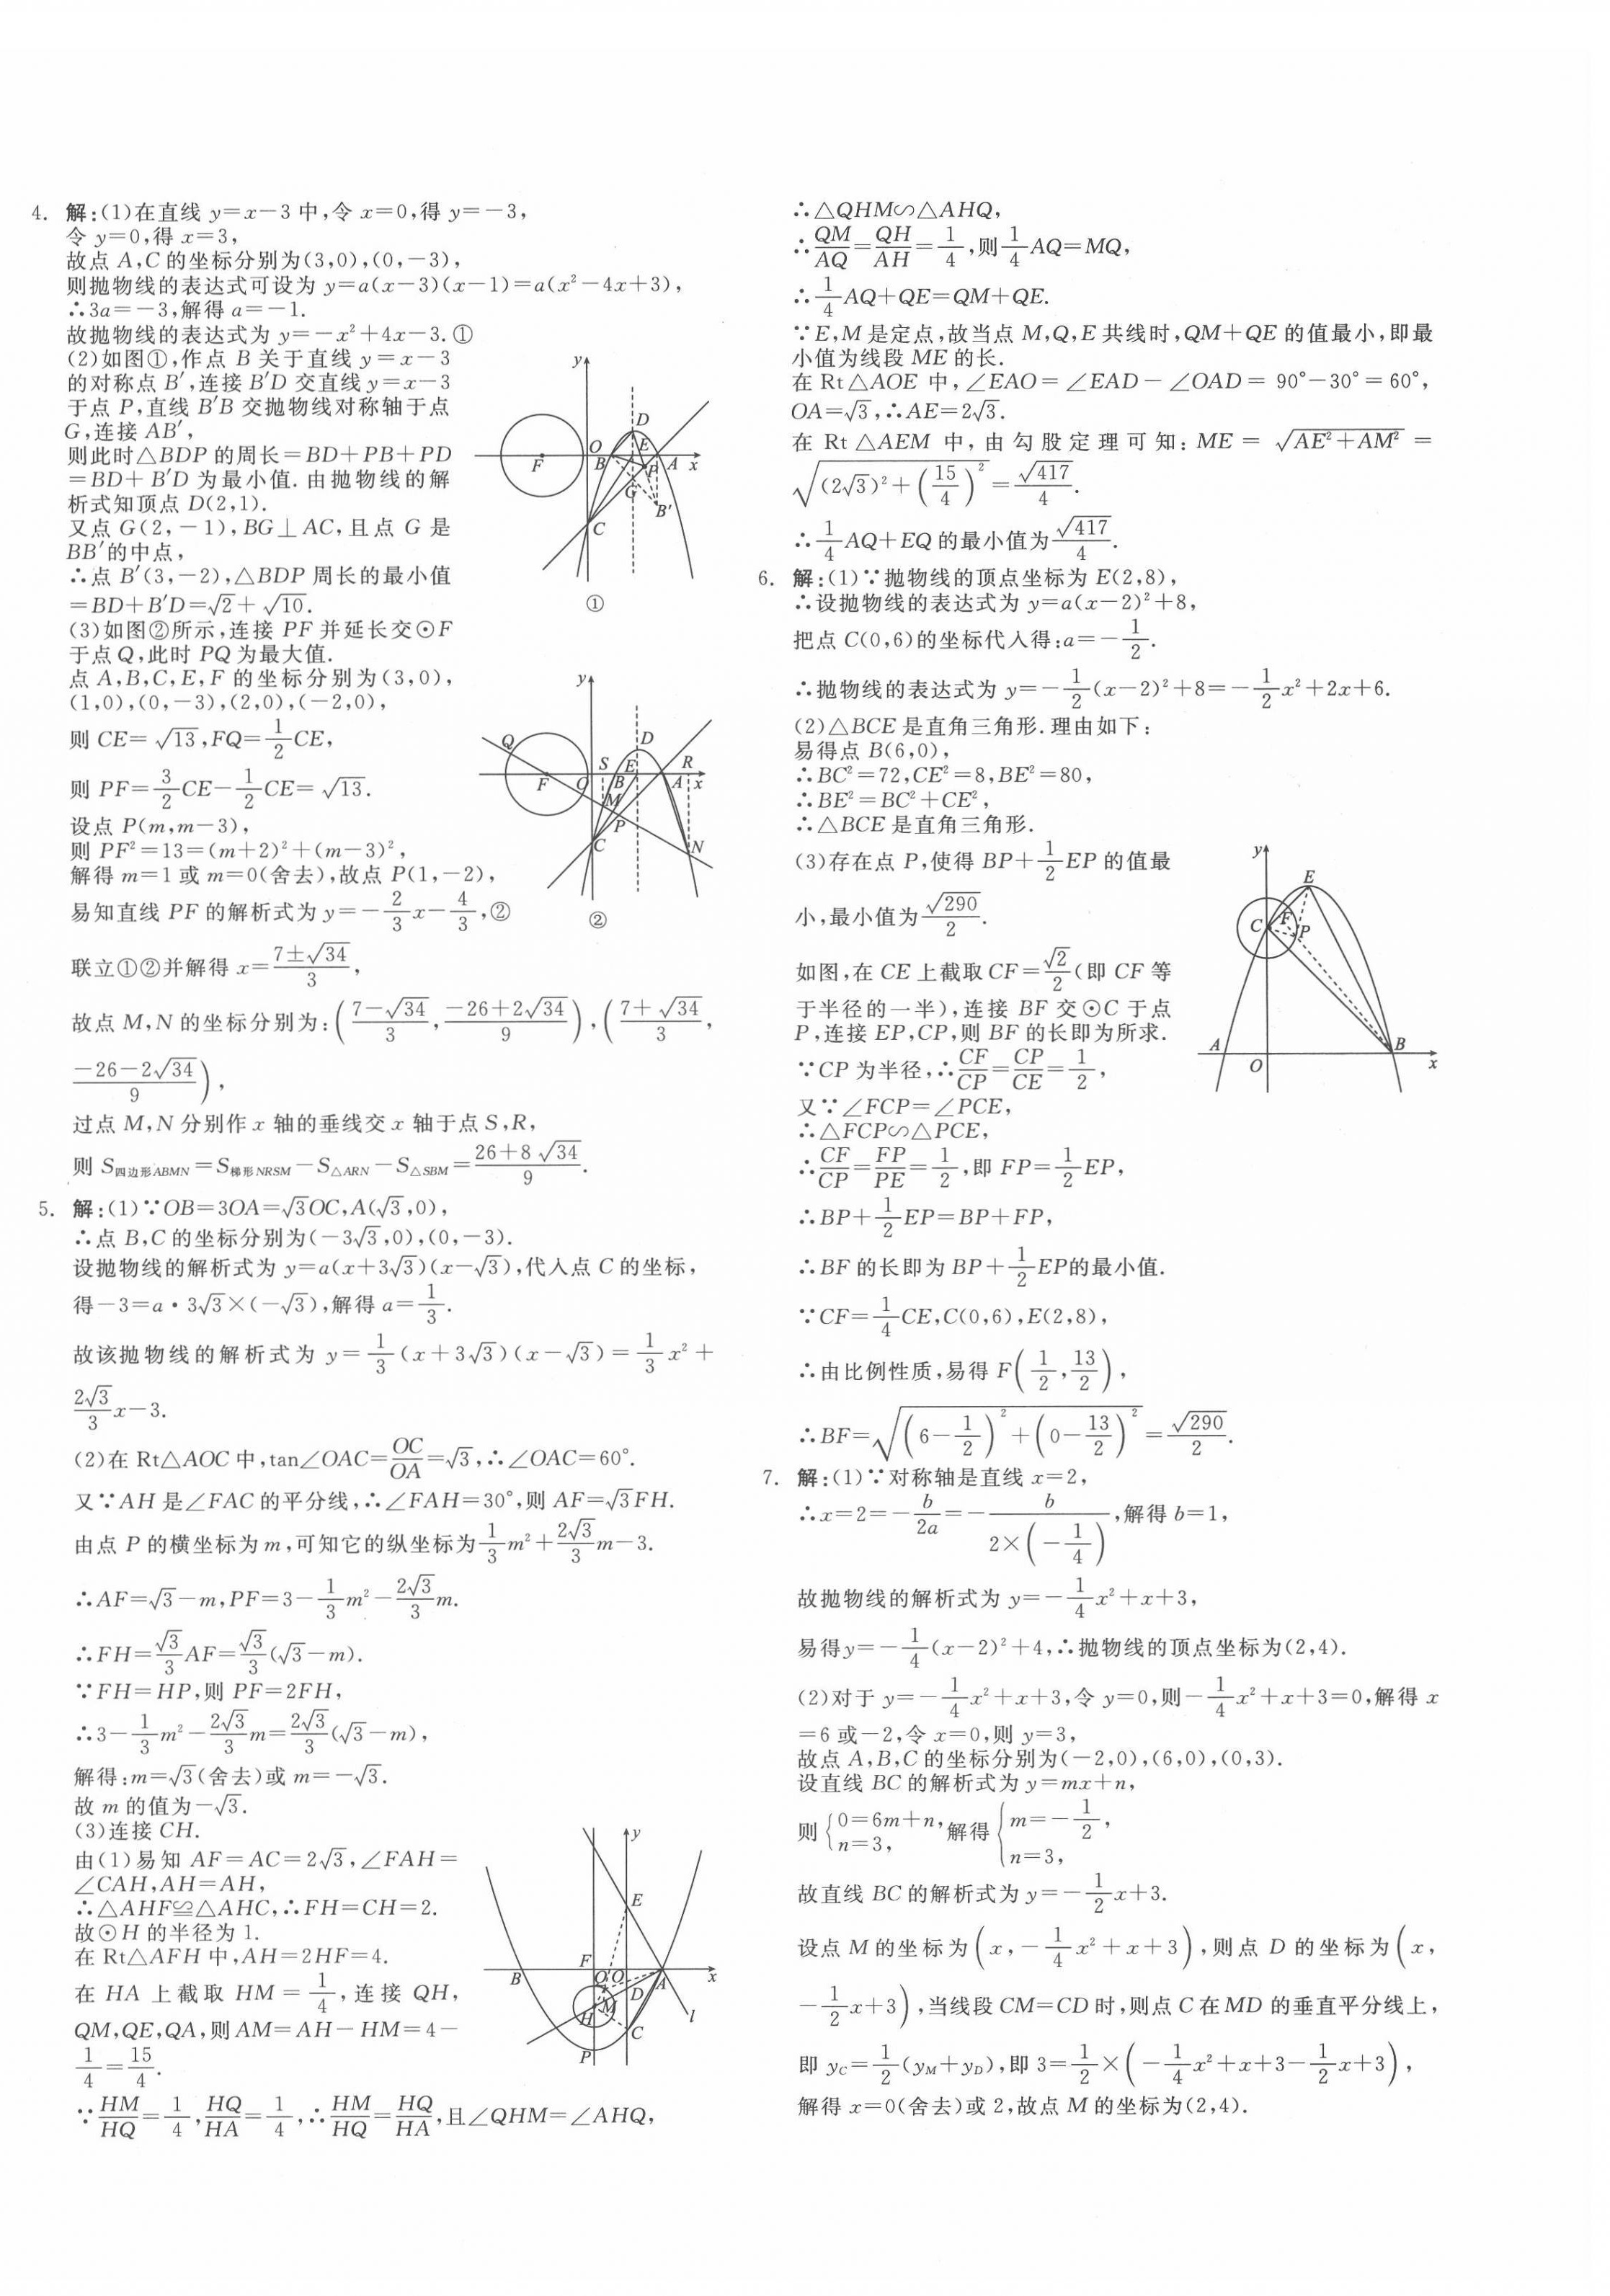 4. 解:(1)在直线 y=x-3 中,令 x=0,得 y=-3,
令 y=0,得 x=3,
故点 A,C 的坐标分别为(3,0),(0,-3),
则抛物线的表达式可设为 y=a(x-3)(x-1)=a(x²-4x+3),
∴3a=-3,解得 a=-1.
故抛物线的表达式为 y=-x²+4x-3.①
(2)如图①,作点 B 关于直线 y=x-3
的对称点 B′,连接 B′D 交直线 y=x-3
于点 P,直线 B′B 交抛物线对称轴于点
G,连接 AB′,
则此时△BDP 的周长=BD+PB+PD
=BD+B′D 为最小值.由抛物线的解
析式知顶点 D(2,1).
又点 G(2,-1),BG⊥AC,且点 G 是
BB′的中点,
∴点 B′(3,-2),△BDP 周长的最小值
=BD+B′D=√2+√10.
(3)如图②所示,连接 PF 并延长交⊙F
于点 Q,此时 PQ 为最大值.
点 A,B,C,E,F 的坐标分别为(3,0),
(1,0),(0,-3),(2,0),(-2,0),
则 CE=√13,FQ=1/2 CE,
则 PF=3/2 CE-1/2 CE=√13.
设点 P(m,m-3),
则 PF²=13=(m+2)²+(m-3)²,
解得 m=1 或 m=0(舍去),故点 P(1,-2),
易知直线 PF 的解析式为 y=-2/3 x-4/3,②
联立①②并解得 x=(7±√34)/3,
故点 M,N 的坐标分别为:((7-√34)/3,(-26+2√34)/9),((7+√34)/3,
(-26-2√34)/9),
过点 M,N 分别作 x 轴的垂线交 x 轴于点 S,R,
则 S四边形ABMN=S梯形NRSM-S△ARN-S△SBM=(26+8√34)/9.
y
D
O
E
F
B
P
A
x
G
B′
C
①
y
Q
D
S
E
R
F
O
B
A
x
M
P
C
N
②
5. 解:(1)∵OB=3OA=√3OC,A(√3,0),
∴点 B,C 的坐标分别为(-3√3,0),(0,-3).
设抛物线的解析式为 y=a(x+3√3)(x-√3),代入点 C 的坐标,
得-3=a·3√3×(-√3),解得 a=1/3.
故该抛物线的解析式为 y=1/3(x+3√3)(x-√3)=1/3 x²+
2√3/3 x-3.
(2)在 Rt△AOC 中,tan∠OAC=OC/OA=√3,∴∠OAC=60°.
又∵AH 是∠FAC 的平分线,∴∠FAH=30°,则 AF=√3FH.
由点 P 的横坐标为 m,可知它的纵坐标为1/3 m²+2√3/3 m-3.
∴AF=√3-m,PF=3-1/3 m²-2√3/3 m.
∴FH=√3/3 AF=√3/3(√3-m).
∵FH=HP,则 PF=2FH,
∴3-1/3 m²-2√3/3 m=2√3/3(√3-m),
解得:m=√3(舍去)或 m=-√3.
故 m 的值为-√3.
(3)连接 CH.
由(1)易知 AF=AC=2√3,∠FAH=
∠CAH,AH=AH,
∴△AHF≌△AHC,∴FH=CH=2.
故⊙H 的半径为 1.
在 Rt△AFH 中,AH=2HF=4.
在 HA 上截取 HM=1/4,连接 QH,
QM,QE,QA,则AM=AH-HM=4-
1/4=15/4.
∵HM/HQ=1/4,HQ/HA=1/4,∴HM/HQ=HQ/HA,且∠QHM=∠AHQ,
y
E
F
B
Q
O
A
x
D
M
H
C
l
P
∴△QHM∽△AHQ,
∴QM/AQ=QH/AH=1/4,则1/4 AQ=MQ,
∴1/4 AQ+QE=QM+QE.
∵E,M 是定点,故当点 M,Q,E 共线时,QM+QE 的值最小,即最
小值为线段 ME 的长.
在 Rt△AOE 中,∠EAO=∠EAD-∠OAD=90°-30°=60°,
OA=√3,∴AE=2√3.
在 Rt△AEM 中,由勾股定理可知:ME=√(AE²+AM²)=
√((2√3)²+(15/4)²)=√417/4.
∴1/4 AQ+EQ 的最小值为√417/4.
6. 解:(1)∵抛物线的顶点坐标为 E(2,8),
∴设抛物线的表达式为 y=a(x-2)²+8,
把点 C(0,6)的坐标代入得:a=-1/2.
∴抛物线的表达式为 y=-1/2(x-2)²+8=-1/2 x²+2x+6.
(2)△BCE 是直角三角形.理由如下:
易得点 B(6,0),
∴BC²=72,CE²=8,BE²=80,
∴BE²=BC²+CE²,
∴△BCE 是直角三角形.
(3)存在点 P,使得 BP+1/2 EP 的值最
小,最小值为√290/2.
如图,在 CE 上截取 CF=√2/2(即 CF 等
于半径的一半),连接 BF 交⊙C 于点
P,连接 EP,CP,则 BF 的长即为所求.
∵CP 为半径,∴CF/CP=CP/CE=1/2,
又∵∠FCP=∠PCE,
∴△FCP∽△PCE,
∴CF/CP=FP/PE=1/2,即 FP=1/2 EP,
∴BP+1/2 EP=BP+FP,
∴BF 的长即为 BP+1/2 EP的最小值.
∵CF=1/4 CE,C(0,6),E(2,8),
∴由比例性质,易得 F(1/2,13/2),
∴BF=√((6-1/2)²+(0-13/2)²)=√290/2.
y
E
C
F
P
A
O
B
x
7. 解:(1)∵对称轴是直线 x=2,
∴x=2=-b/2a=-b/(2×(-1/4)),解得 b=1,
故抛物线的解析式为 y=-1/4 x²+x+3,
易得y=-1/4(x-2)²+4,∴抛物线的顶点坐标为(2,4).
(2)对于 y=-1/4 x²+x+3,令 y=0,则-1/4 x²+x+3=0,解得 x
=6 或-2,令 x=0,则 y=3,
故点 A,B,C 的坐标分别为(-2,0),(6,0),(0,3).
设直线 BC 的解析式为 y=mx+n,
则{0=6m+n, n=3, 解得{m=-1/2, n=3,
故直线 BC 的解析式为 y=-1/2 x+3.
设点 M 的坐标为(x,-1/4 x²+x+3),则点 D 的坐标为(x,
-1/2 x+3),当线段 CM=CD 时,则点 C 在 MD 的垂直平分线上,
即 yC=1/2(yM+yD),即 3=1/2×(-1/4 x²+x+3-1/2 x+3),
解得 x=0(舍去)或 2,故点 M 的坐标为(2,4).